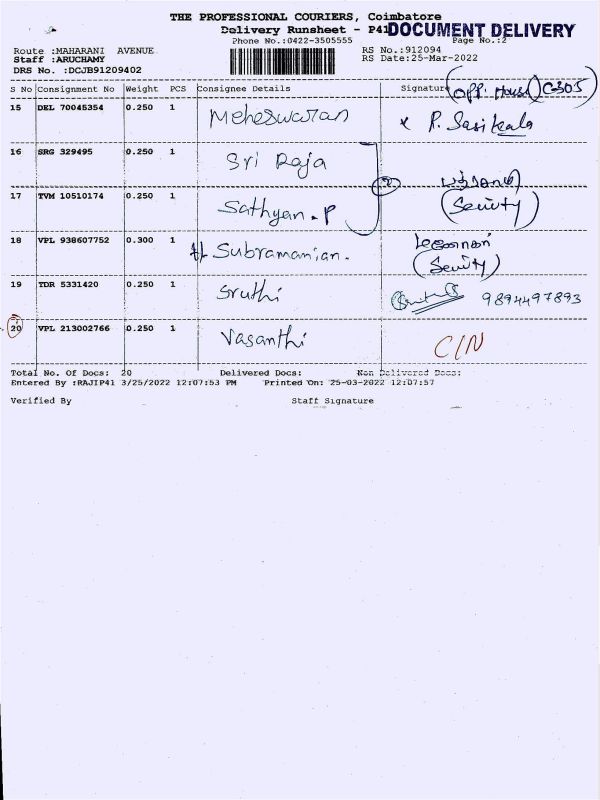 THE PROFESSIONAL COURIERS, Coimbatore
Delivery Runsheet - P41 DOCUMENT DELIVERY
Phone No.:0422-3505555 Page No.:2
Route :MAHARANI AVENUE RS No.:912094
Staff :ARUCHAMY RS Date:25-Mar-2022
DRS No. :DCJB91209402
S No Consignment No Weight PCS Consignee Details Signature (Opp. House) C-305
15 DEL 70045354 0.250 1 Meheswaran x P. Sasikala
16 SRG 329495 0.250 1 Sri Raja
17 TVM 10510174 0.250 1 Sathyan.P (Security)
18 VPL 938607752 0.300 1 Subramanian. (Security)
19 TDR 5331420 0.250 1 Sruthi 9894497893
20 VPL 213002766 0.250 1 Vasanthi C/N
Total No. Of Docs: 20 Delivered Docs: Non Delivered Docs:
Entered By :RAJIP41 3/25/2022 12:07:53 PM Printed On: 25-03-2022 12:07:57
Verified By Staff Signature